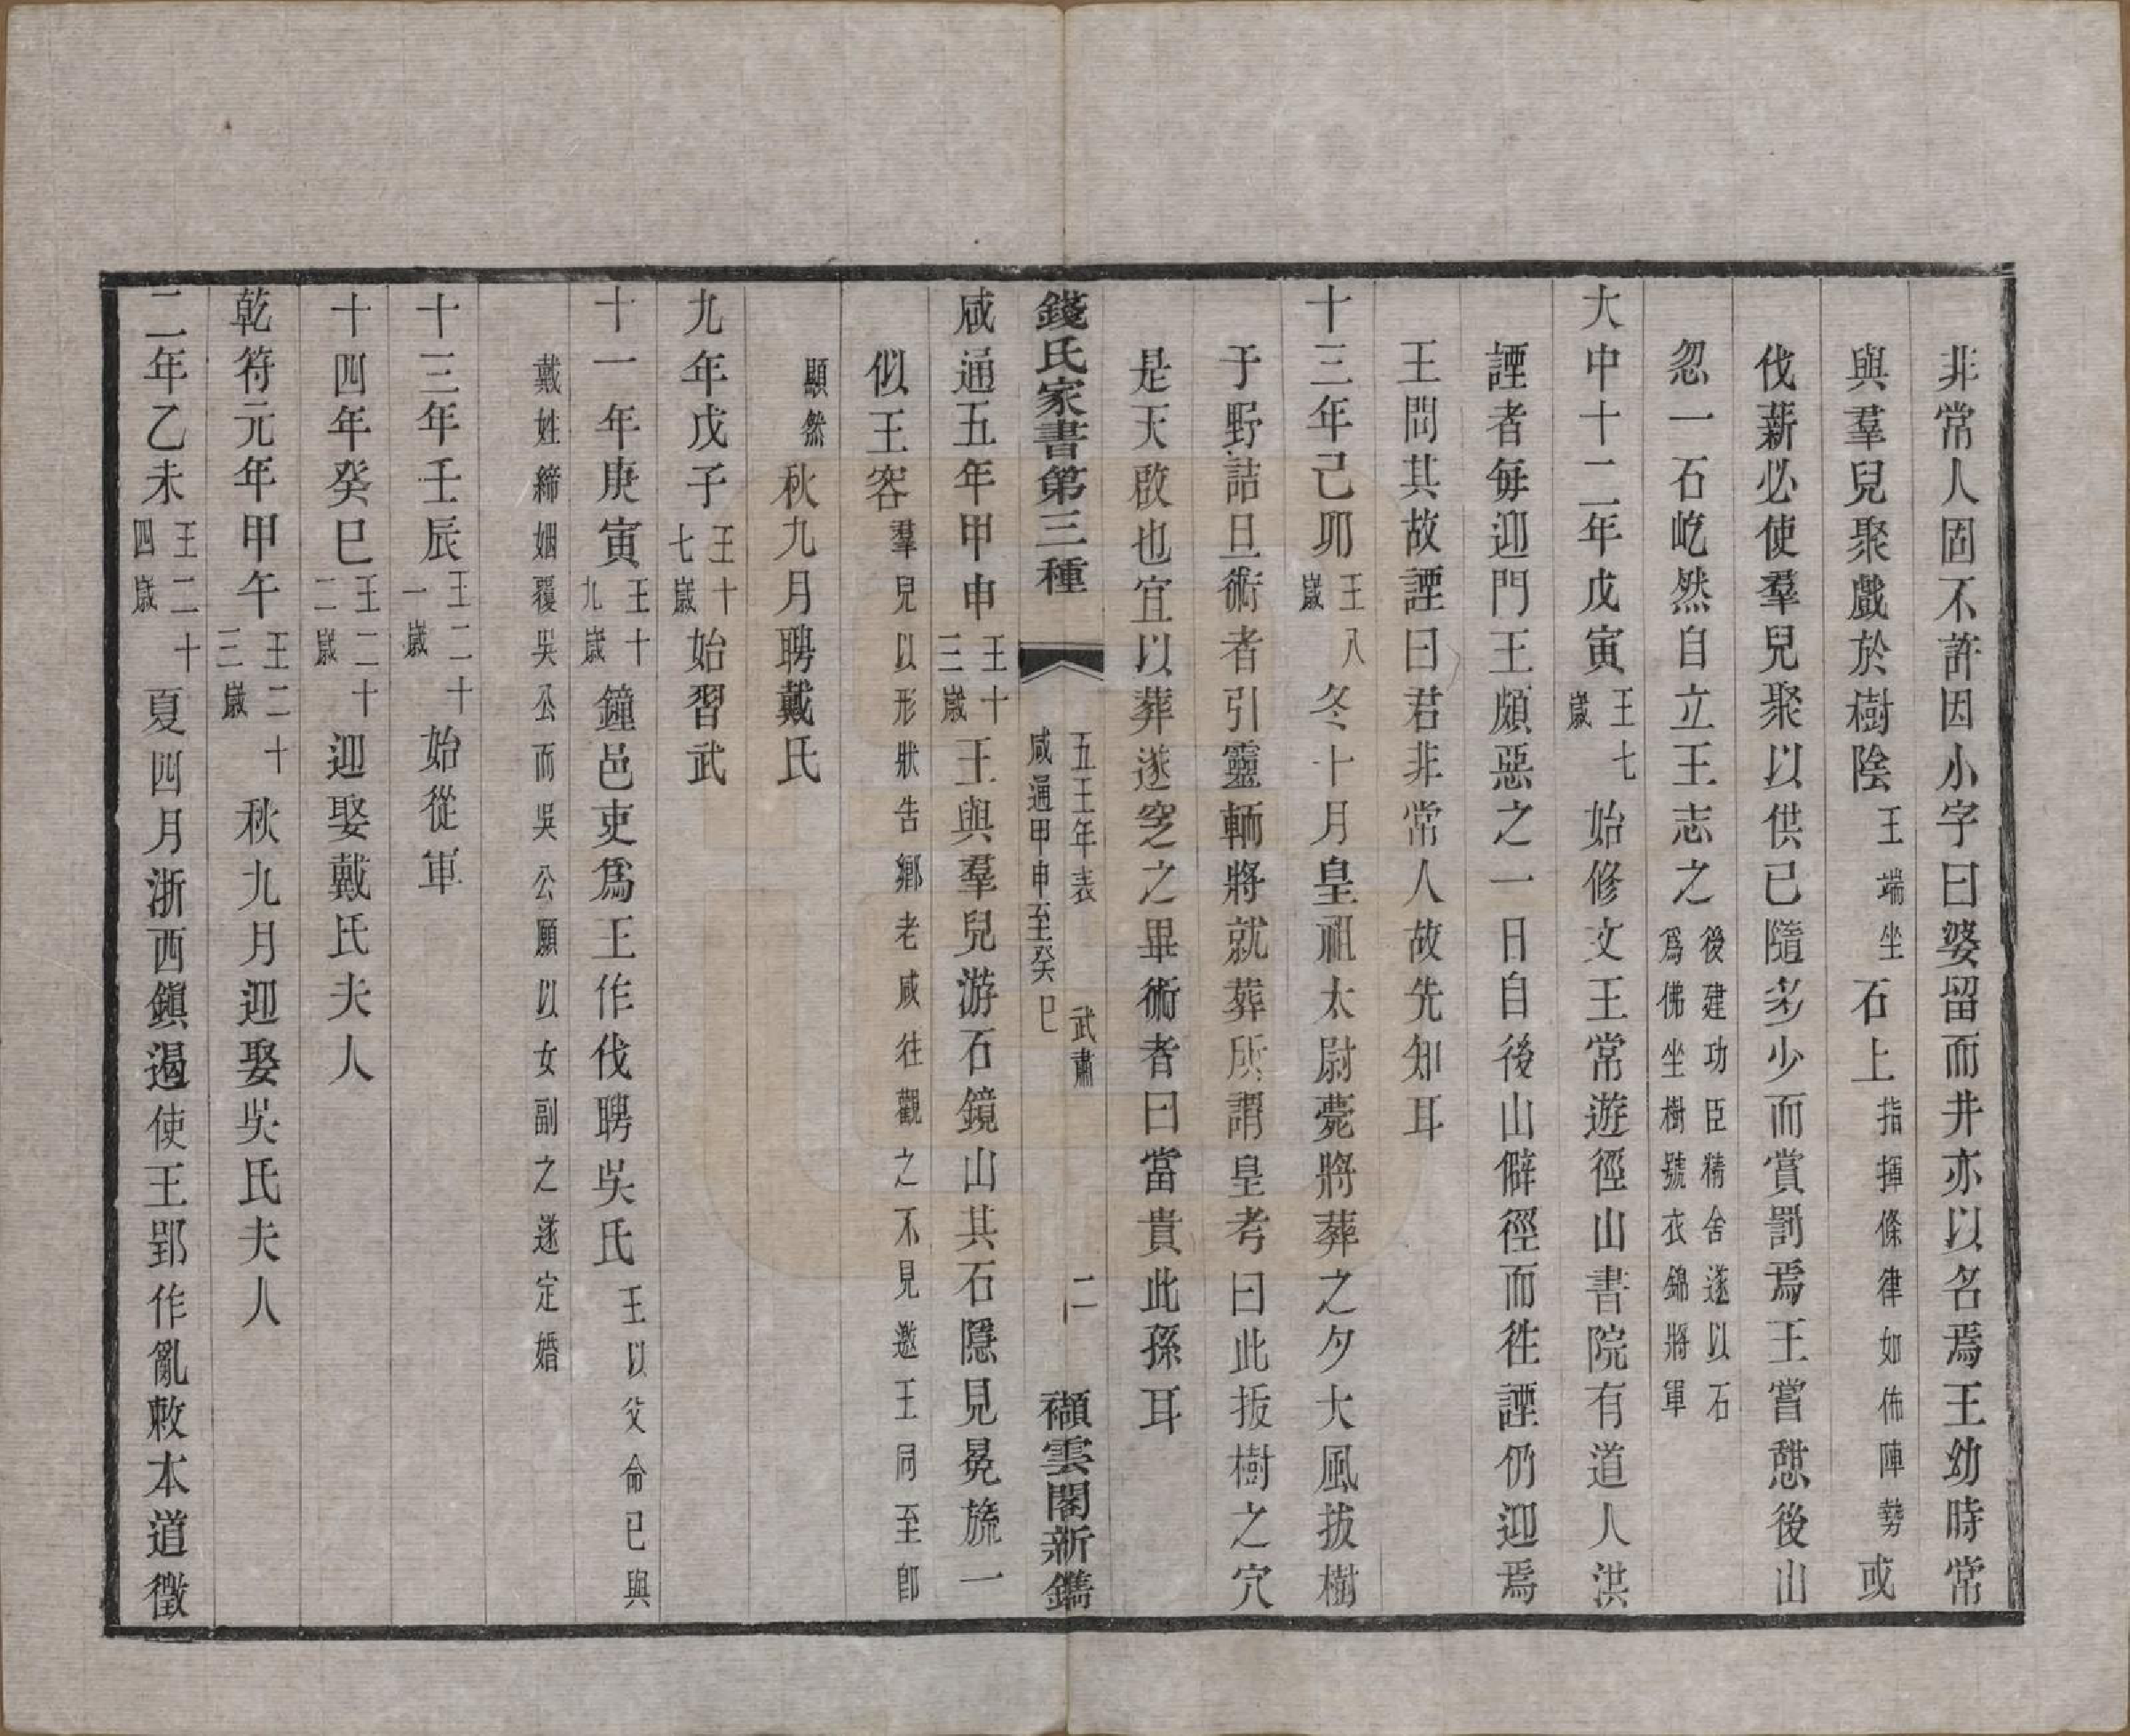 非常人固不許因小字曰婆留而井亦以名焉王幼時常
與羣兒聚戲於樹陰王端坐石上指揮條律如佈陣勢或
伐薪必使羣兒聚以供已隨多少而賞罰焉王嘗憇後山
忽一石屹然自立王志之後建功臣精舍遂以石爲佛坐樹號衣錦將軍
大中十二年戊寅王七歲始修文王常遊徑山書院有道人洪
諲者每迎門王頗惡之一日自後山僻徑而徃諲仍迎焉
王問其故諲曰君非常人故先知耳
十三年己卯王八歲冬十月皇祖太尉薨將葬之夕大風拔樹
于野詰旦術者引靈輀將就葬所謂皇考曰此拔樹之穴
是天啟也宜以葬遂窆之畢術者曰當貴此孫耳
錢氏家書第三種
五王年表 武肅
咸通甲申至癸巳
二
襭雲閣新鐫
咸通五年甲申王十三歲王與羣兒游石鏡山其石隱見冕旒一
似王容羣兒以形狀告鄉老咸徃觀之不見邀王同至卽
顯然秋九月聘戴氏
九年戊子王十七歲始習武
十一年庚寅王十九歲鐘邑吏爲王作伐聘吳氏王以父命已與
戴姓締姻覆吳公而吳公願以女副之遂定婚
十三年壬辰王二十一歲始從軍
十四年癸巳王二十二歲迎娶戴氏夫人
乾符元年甲午王二十三歲秋九月迎娶吳氏夫人
二年乙未王二十四歲夏四月浙西鎭遏使王郢作亂敕本道徵